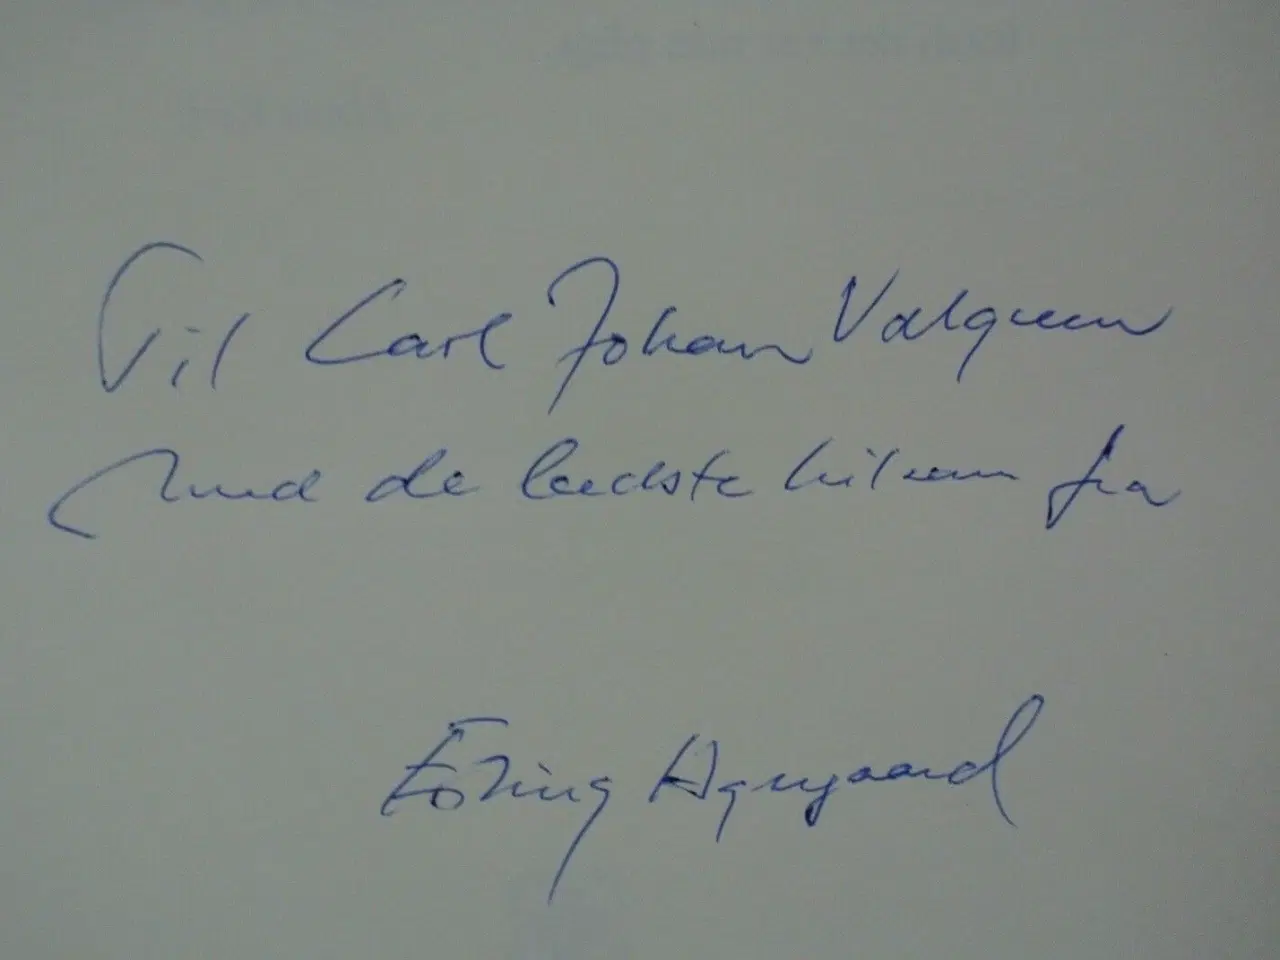 Til Carl Johan Valgreen
med de bedste hilsener fra
Esting Agergaard